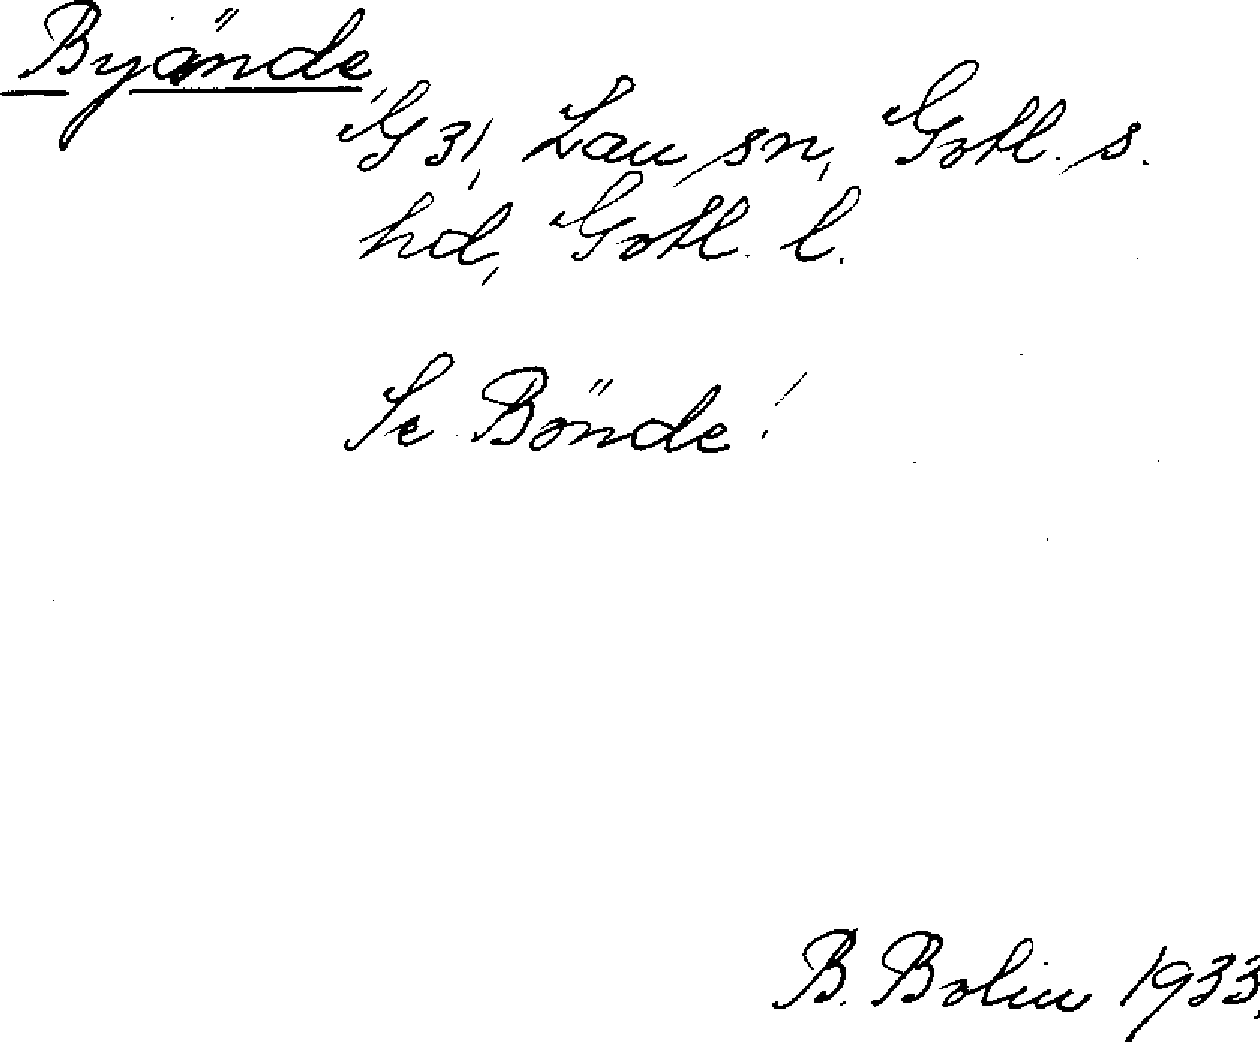 Byände
G 31, Lau sn, Gotl. s.
hd, Gotl. l.
Se Bönde!
B. Bolin 1933.